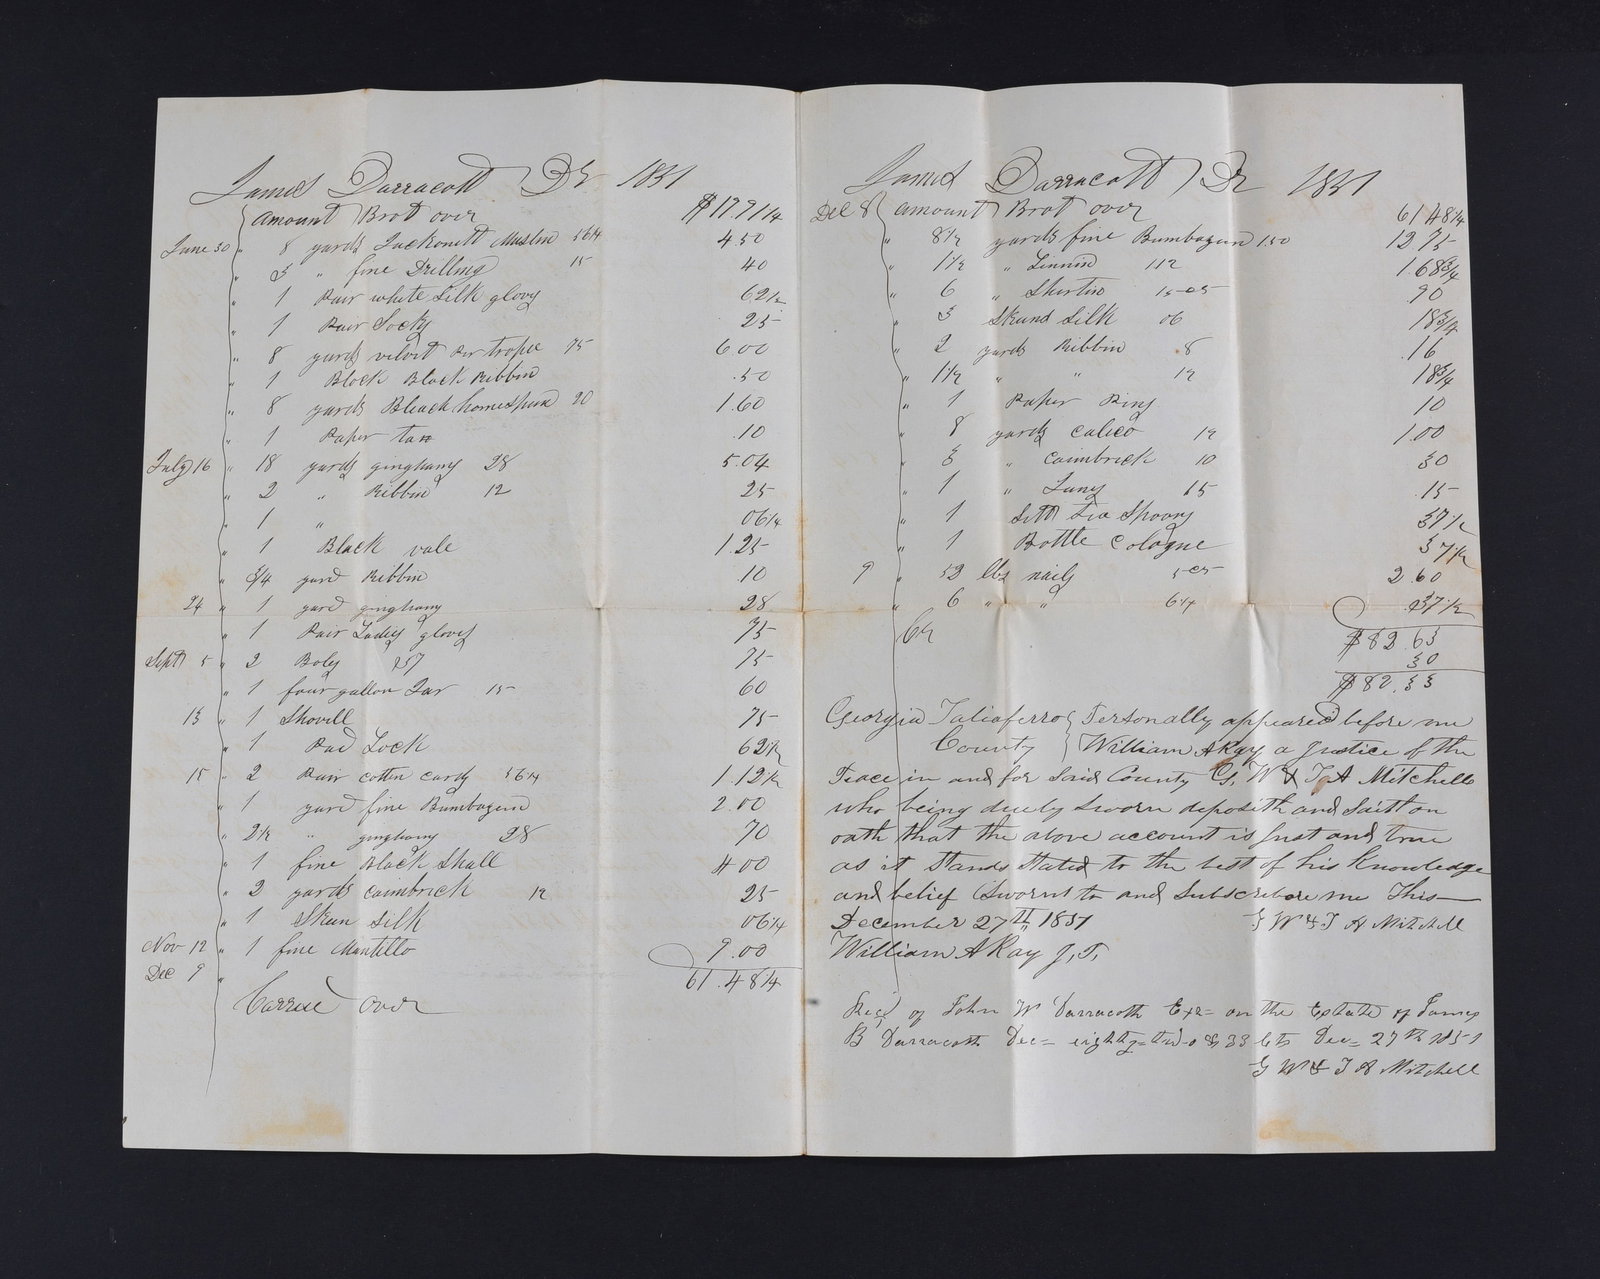 James Darracott Dr 1851
Amount Brot over $17.71 1/4
June 30 " 8 yards Jackonett Muslin 56 1/4 4.50
" 3 " fine Drilling 15 40
" 1 Pair white Silk glovs 62 1/2
" 1 Pair Socks 25
" 8 yards velvit 75 6.00
" 1 Block Black Ribbin .50
" 8 yards Bleach homespun 20 1.60
" 1 Paper tax .10
July 16 " 18 yards ginghams 28 5.04
" 2 " Ribbin 12 25
" 1 " 06 1/4
" 1 Black vale 1.25
" 3/4 yard Ribbin 10
24 " 1 yard ginghams 28
" 1 Pair Ladies gloves 75
Sept 5 " 2 75
" 1 four gallon Jar 15 60
13 " 1 Shovell 75
" 1 Pad Lock 62 1/2
15 " 2 Pair cotten cards 56 1/4 1.12 1/2
" 1 yard fine Bumbazeen 2.00
" 2 1/2 " ginghams 28 70
" 1 fine Black Shall 4.00
" 2 yards cambrick 12 25
" 1 Skun Silk 06 1/4
Nov 12 " 1 fine Mantillo 9.00
Dec 9 " 61.48 1/4
Carried Over
James Darracott Dr 1851
Dec 8 Amount Brot over 61.48 1/4
" 8 1/2 yards fine Bumbazeen 1.50 12.75
" 1 1/2 " Linnin 112 1.68 3/4
" 6 " Shirtin 15 cs .90
" 3 Skund Silk 06 18 3/4
" 2 yards Ribbin .8 .16
" 1 1/2 " " 12 18 3/4
" 1 Paper Pins 10
" 8 yards calico 12 1.00
" 3 " cambrick 10 30
" 1 " 15 .15
" 1 Sett Tea Spoons 37 1/2
" 1 Bottle Cologne 37 1/2
9 " 52 lbs nails 5 cs 2.60
" 6 " " 6 1/4 .37 1/2
Cr $82.63
30
$82.33
Georgia Taliaferro } Personally appeared before me
County } William A Ray a Justice of the
Peace in and for Said County G. W & T. A Mitchell
who being duely Sworn deposith and Saith on
oath that the above account is Just and true
as it Stands Stated to the best of his Knowledge
and belief Sworn to and Subscribe me This
December 27th 1851 G W & T A Mitchell
William A Ray J. P.
Recd of John W Darracott Exr on the Estate of James
B Darracott Dec= eighty=two & 33 cts Dec= 27th 1851
G W & T A Mitchell